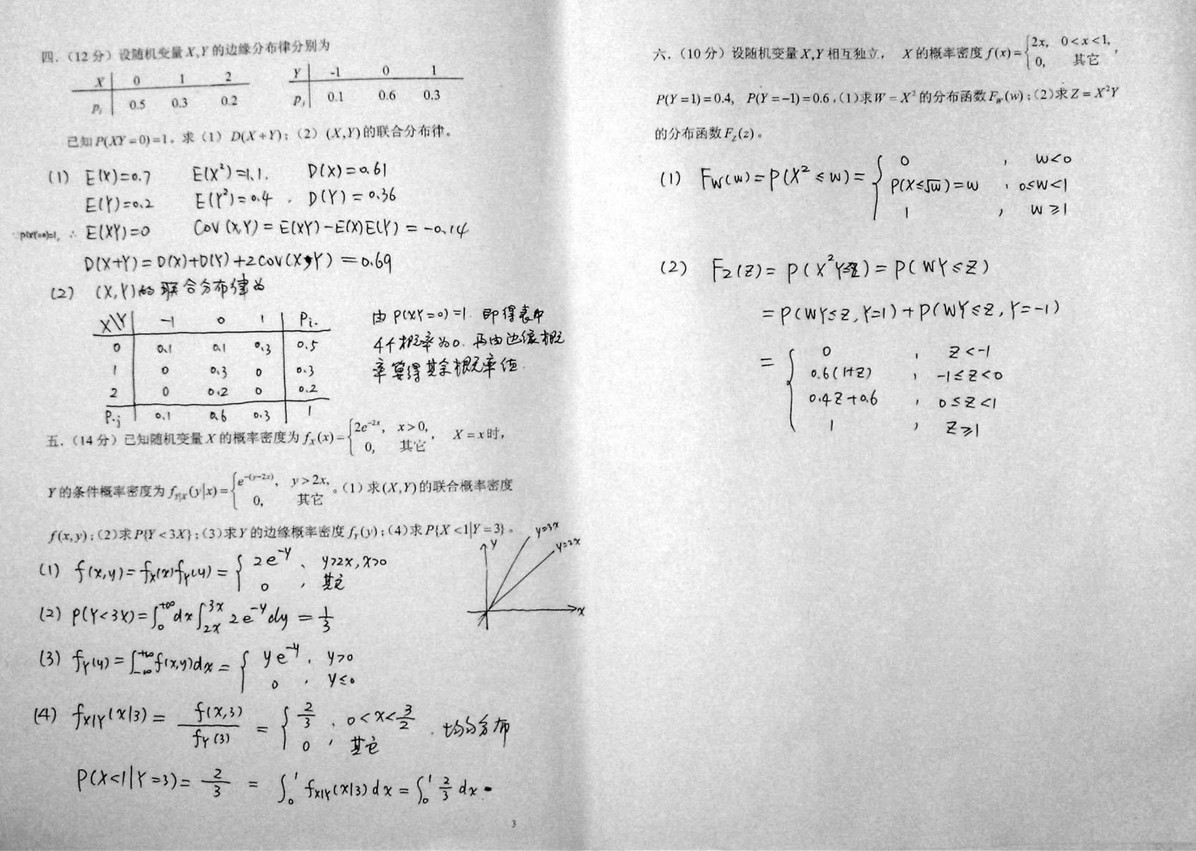 四.（12分）设随机变量X,Y的边缘分布律分别为
X 0 1 2
p_i 0.5 0.3 0.2
Y -1 0 1
p_j 0.1 0.6 0.3
已知P(XY=0)=1。求（1）D(X+Y)；（2）(X,Y)的联合分布律。
(1) E(X)=0.7 E(X²)=1.1. D(X)=0.61
E(Y)=0.2 E(Y²)=0.4 . D(Y)=0.36
∵P(XY=0)=1, ∴ E(XY)=0 Cov(X,Y)=E(XY)-E(X)E(Y)=-0.14
D(X+Y)=D(X)+D(Y)+2cov(X,Y)=0.69
(2) (X,Y)的联合分布律为
X\Y -1 0 1 Pi.
0 0.1 0.1 0.3 0.5
1 0 0.3 0 0.3
2 0 0.2 0 0.2
P.j 0.1 0.6 0.3 1
由P(XY=0)=1. 即得表中
4个概率为0. 再由边缘概
率算得其余概率值.
五.（14分）已知随机变量X的概率密度为f_X(x)={2e^{-2x}, x>0, 0, 其它, X=x时,
Y的条件概率密度为f_{Y|X}(y|x)={e^{-(y-2x)}, y>2x, 0, 其它。(1)求(X,Y)的联合概率密度
f(x,y);(2)求P{Y<3X};(3)求Y的边缘概率密度f_Y(y);(4)求P{X<1|Y=3}。
(1) f(x,y)=f_X(x)f_Y(y)={2e^{-y}, y>2x,x>0 0, 其它
y y=3x y=2x x
(2) P(Y<3X)=∫_0^{+∞}dx∫_{2x}^{3x}2e^{-y}dy=1/3
(3) f_Y(y)=∫_{-∞}^{+∞}f(x,y)dx={ye^{-y}, y>0 0, y≤0
(4) f_{X|Y}(x|3)=f(x,3)/f_Y(3)={2/3, 0<x<3/2 0, 其它 . 均匀分布
P(X<1|Y=3)=2/3=∫_0^1 f_{X|Y}(x|3)dx=∫_0^1 2/3 dx.
3
六.（10分）设随机变量X,Y相互独立， X的概率密度f(x)={2x, 0<x<1, 0, 其它,
P(Y=1)=0.4, P(Y=-1)=0.6,(1)求W=X²的分布函数F_W(w);(2)求Z=X²Y
的分布函数F_Z(z)。
(1) F_W(w)=P(X²≤w)={0, w<0
P(X≤√w)=w, 0≤w<1
1, w≥1
(2) F_Z(z)=P(X²Y≤z)=P(WY≤z)
=P(WY≤z,Y=1)+P(WY≤z,Y=-1)
={0, z<-1
0.6(1+z), -1≤z<0
0.4z+0.6, 0≤z<1
1, z≥1